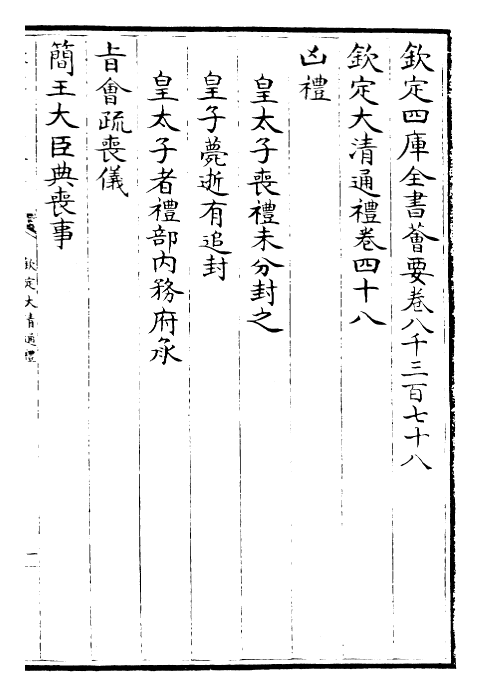 欽定四庫全書薈要卷八千三百七十八
欽定大清通禮卷四十八
凶禮
皇太子喪禮未分封之
皇子薨逝有追封
皇太子者禮部內務府承
旨會疏喪儀
簡王大臣典喪事
欽定大清通禮
一